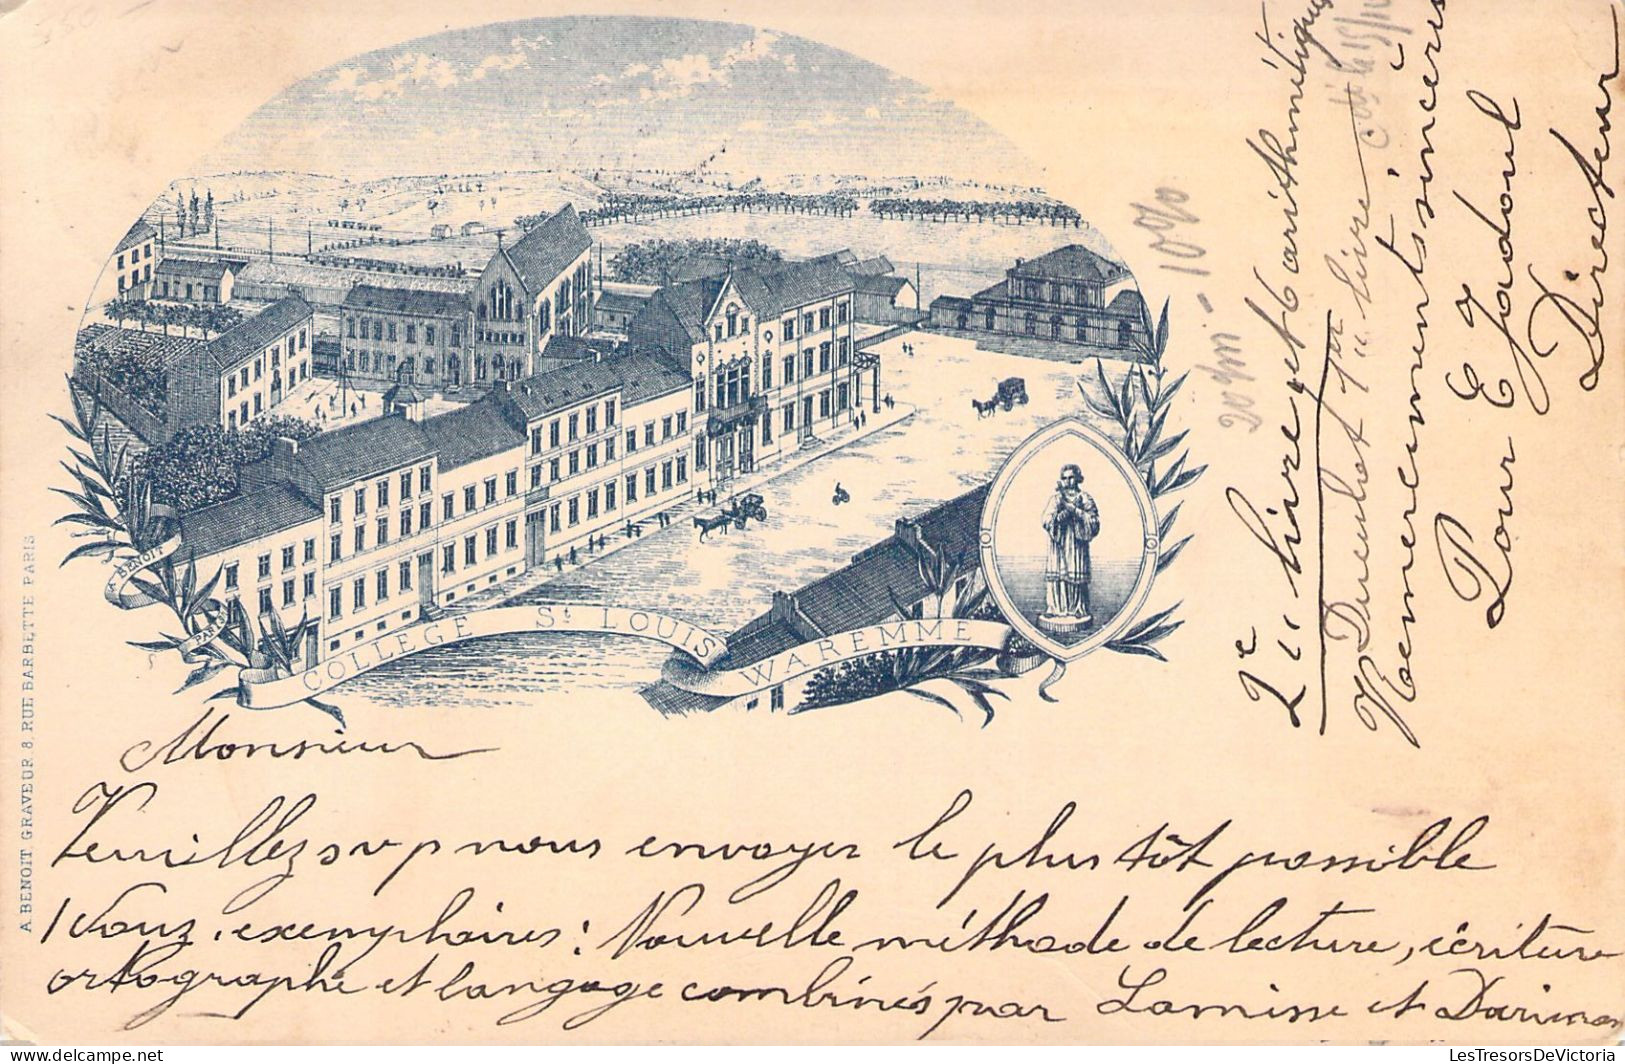 COLLEGE St LOUIS
WAREMME
BENOIT
PARIS
A. BENOIT GRAVEUR 8, RUE BARBETTE PARIS
Monsieur
Veuillez svp nous envoyer le plus tôt possible
1 douz. exemplaires: Nouvelle méthode de lecture, écriture
orthographe et langage combinés par Lamisse et
2e " livre, et 6 arithmétiques
et 1er " livre
Remerciements sincères
Pour E Jadoul
Directeur
20 fvi - 10%
www.delcampe.net
LesTresorsDeVictoria